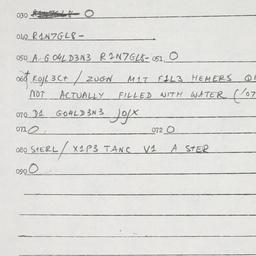 030 O
040 R1N7GL8-
050 A. GO4LD3N3 R1N7GL8- 051 O
060 / ZUGN M1T F1L3 HEMERS
NOT ACTUALLY FILLED WITH WATER ('07
070 D1 GO4LD3N3 JOJX
071 O 072 O
080 STERL/ X1P3 TANC V1 A STER
090 O